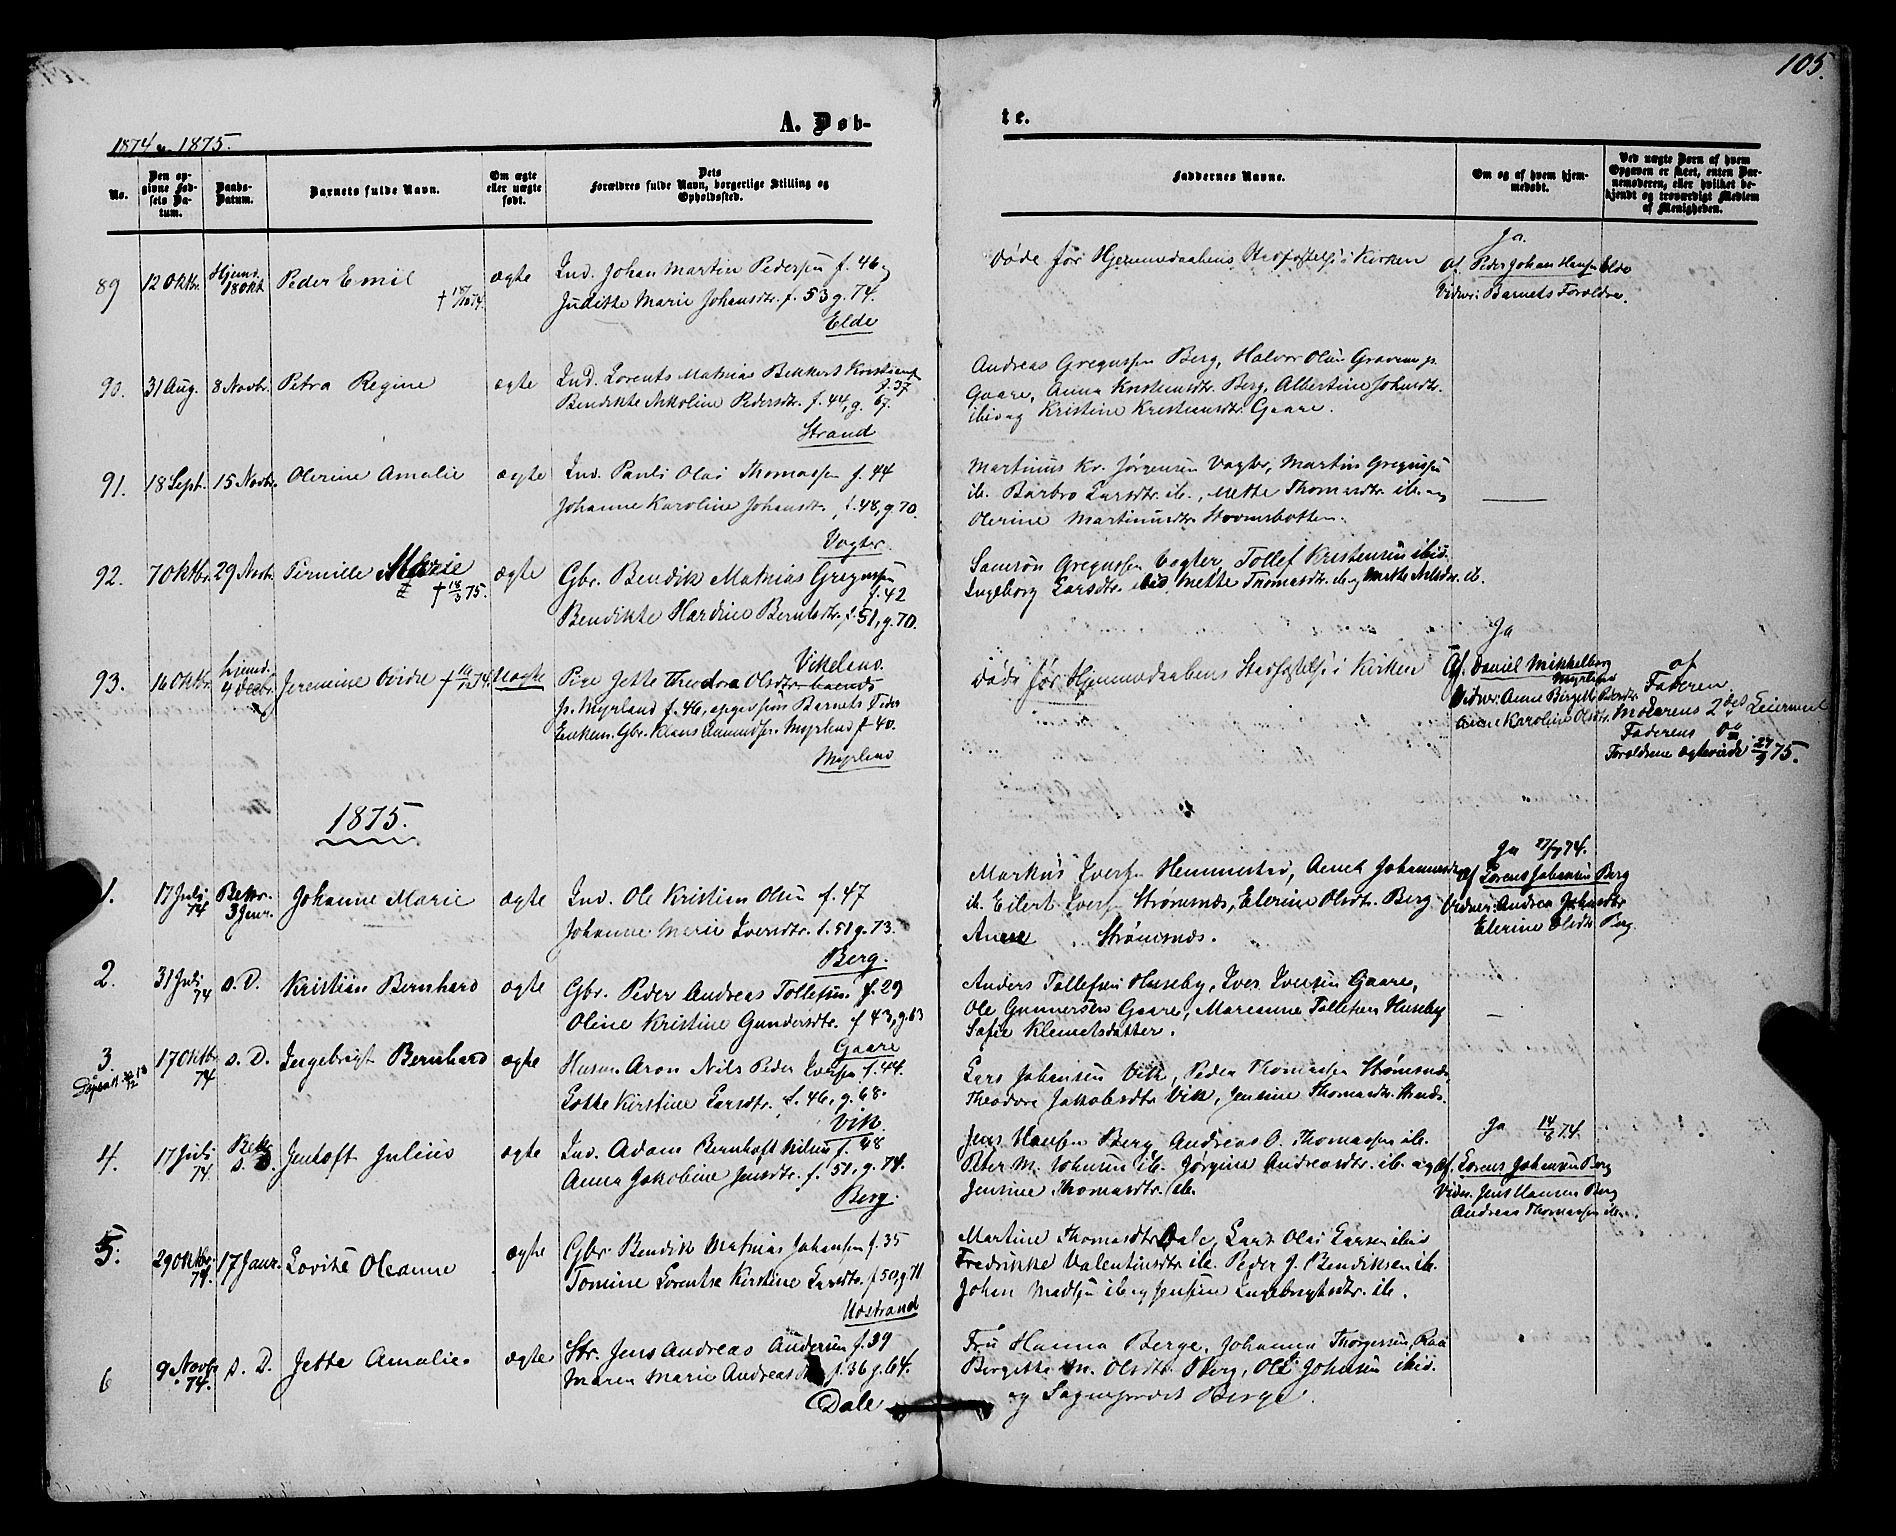 105.
A. Døb-
te.
1874 og 1875.
No.
Den op-
givne Fød-
sels Da-
tum.
Daabs-
Datum.
Barnets fulde Navn.
Om ægte
eller uægte
født.
Dets
Forældres fulde Navn, borgerlige Stilling og
Opholdssted.
Faddernes Navne.
Om og af hvem hjem-
medøbt.
Ved uægte Børn af hvem
Opgaven er skeet, enten Bar-
nemoderen, eller hvilket be-
kjendt og troværdigt Medlem
af Menigheden.
89 12 Oktbr. Hjemd. 18 Okt. Peder Emil † 18/10 74. ægte
Ind. Johan Martin Pedersen f. 46 og
Juditte Marie Johansdtr. f. 53 g. 74.
Elde
Døde før Hjemmedaabens Stadfæstelse i Kirken
Ja.
Af Peder Johan Hansen Elde
Vidner: Barnets Forældre.
90. 31 Aug. 8 Novbr. Petra Regine ægte
Ind. Lorents Mathias Bekkert Kristiansen f. 37
Bendikte Nikoline Pedersdtr. f. 44, g. 67.
Strand
Andreas Gregussen Berg, Halvor Olsen
Gaare, Anna Kristensdtr. Berg, Albertine Johnsdtr.
ibid og Kristine Kristiansdtr. Gaare.
91. 18 Sept. 15 Novbr. Olerine Amalie ægte
Ind. Pauli Olai Thomassen f. 44
Johanne Karoline Johansdtr. f. 48, g. 70.
Vogter.
Martinus Kr. Jørgensen Vogter, Martin Gregussen
ib. Barbro Larsdtr. ib., Mette Thomasdtr. ib. og
Olerine Martinusdtr.
92. 7 Oktbr. 29 Novbr. Pernille Marie † 18/3 75. ægte
Gbr. Bendik Mathias Gregussen
f. 42
Bendikte Hardine Berntsdtr. f. 51, g. 70.
Vikeland.
Samson Gregussen Vogter, Tollef Kristensen ibid.
Ingeborg Larsdtr. ibid, Mette Thomasdtr. ib. og Mette Nilsdtr. ib.
93. 16 Oktbr. hjemd. 4 Decbr. Jeremine uægte
Pige Jette Theodora Olsdtr.
p. Myrland f. 46, opgiv som Barnets Fader
Enkem. Gbr. Klaus Myrland f. 40.
Myrland
Døde før Hjemmedaabens Stadfæstelse i Kirken
Ja
Af. Daniel Mikkelborg
Myrland
Vidner: Anne Birgitte Pedersdtr.
Anne Karoline Olsdtr.
af
Faderen
Moderens 2det Leiermaal
Faderens
Forældrene ægteviede 27/9 75.
1875.
1. 17 Juli 74 Bekr. 3 Janr. Johanne Marie ægte
Ind. Ole Kristian Olsen f. 47
Johanne Marie Iversdtr. f. 51 g. 73.
Berg.
Markus Iversen Hemmestad, Anna Johannesdtr.
ib. Eilert Iversen Strømsnæs, Elerine Olsdtr. Berg
Strømsnæs.
Ja 27/7 74.
Af Lorens Johansen Berg
Vidner: Andrea Johansdtr
Elerine Olsdtr Berg.
2. 31 Juli 74 s. D. Kristian Bernhard ægte
Gbr. Peder Andreas Tollefsen f. 29
Oline Kristine Gundersdtr. f. 43, g. 63
Gaare
Anders Tollefsen Huseby, Iver Iversen Gaare,
Ole Gunnersen Gaare, Marianne Tollefsen Huseby
Sofie Klemetsdatter.
3 17 Oktbr. 74 s. D. Ingebrigt Bernhard ægte
Husm. Aron Nils Peder Iversen f. 44.
Lotte Kirstine Larsdtr. f. 46, g. 68.
Vik.
Lars Johansen Vik, Peder Thomassen Strømsnæs,
Theodore Jakobsdtr Vik, Jensine Thomasdtr.
4. 17 Juli 74 Bekr. s. D. Jentoft Julius ægte
Ind. Adam Bernhoft Nilsen f. 48
Anna Jakobine Jensdtr. f. 51, g. 74.
Berg.
Jens Hansen Berg, Andreas O. Thomassen ib.
Peter M. Johnsen ib. Jørgine Andreasdtr. ib. og
Jensine Thomasdtr. ib.
Ja 14/8 74.
Af. Lorens Johansen Berg
Vidn. Jens Hansen Berg
Andreas Thomassen ib.
5. 29 Oktbr. 74. 17 Janr. Lovise Oleanne ægte
Gbr. Bendik Mathias Johansen f. 35
Tomine Lorentse Kirstine Larsdtr. f. 50, g. 71
Nostrand
Martine Thomasdtr. Dale, Lars Olai Larsen ibid
Fredrikke Valentinsdtr ib. Peder J. Bendiksen ib.
Johan Madsen ib. og Jensine Ingebrigtsdtr. ib.
6 9 Novbr. 74. s. D. Jette Amalie. ægte
Str. Jens Andreas Andersen f. 39
Maren Marie Andreasdtr. f. 36 g. 64.
Dale.
Fru Hanna Berge, Johannes Thorgersen
Bergitte M. Olsdtr. Berg, Ole Johnsen ibid.
og Sognepræst Berge.